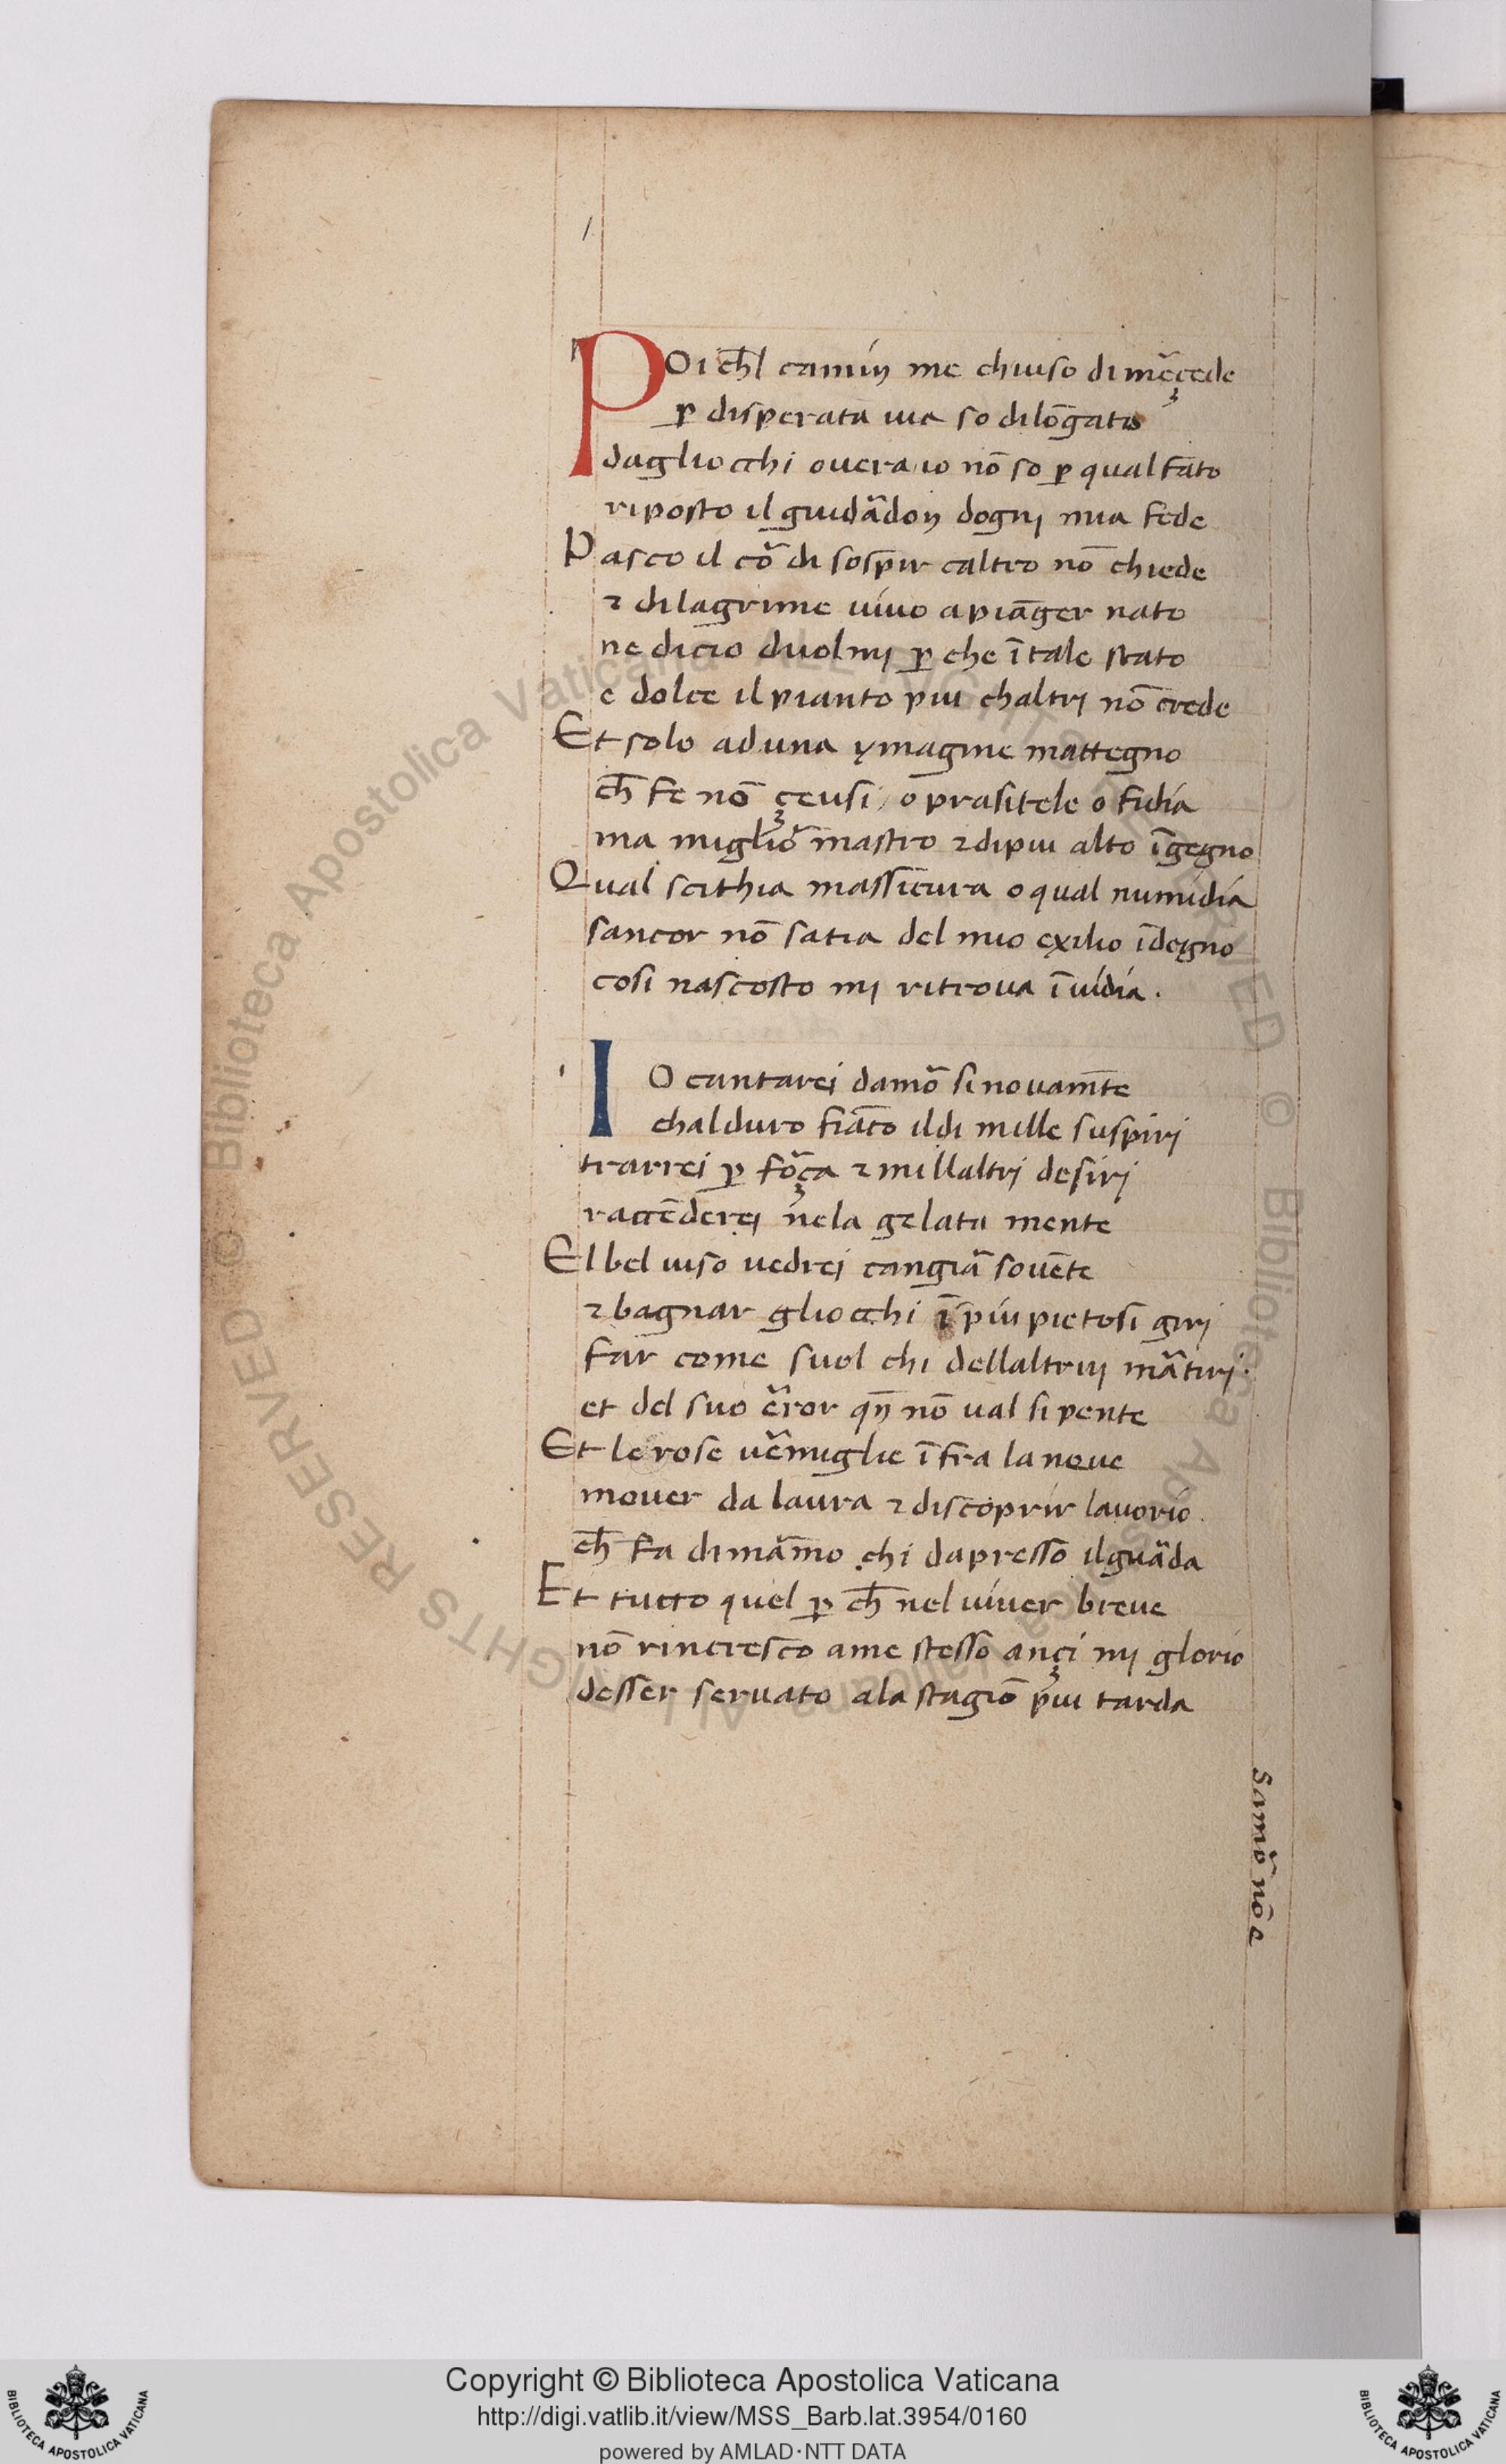 POi ch̄l camin me chiuso di mẽçede
ꝑ disperata uia so dilōgato
dagliocchi ouera io nō so ꝑ qual fato
riposto il guidãdon dogni mia fede
Pasco il cõ di sospir caltro nō chiede
⁊ dilagrime uiuo apiāger nato
ne dicio duolmi ꝑ che ī tale stato
e dolce il pianto piu chaltri nō crede
Et solo aduna ymagine mattegno
ch̄ fe nō çeusi / o prasitele o fidia
ma migliõ mastro ⁊ dipiu alto īgegno
Qual scithia massicura o qual numidia
sancor nō satia del mio exilio īdegno
cosi nascosto mi ritroua īuidia .
IO cantarei damõ si nouam̄te
chalduro fiāco ildi mille suspiri
trarrei ꝑ fõça ⁊ millaltri desiri
raccēderei nela gelata mente
El bel uiso uedrei cangiã souēte
⁊ bagnar gliocchi ī piu pietosi giri
far come suol chi dellaltrui mãtiri .
et del suo ẽror qn̄ nō ual si pente
Et le rose uẽmiglie ī fra la neue
mouer da laura ⁊ discoprir lauorio .
ch̄ fa dimãmo chi dapresso ilguãda
Et tutto quel ꝑ ch̄ nel uiuer breue
nō rincresco ame stesso ançi mi glorio
desser seruato ala stagiō piu tarda
Samõ nō e
© Biblioteca Apostolica Vaticana ALL RIGHTS RESERVED © Biblioteca Apostolica Vaticana ALL RIGHTS RESERVED
Copyright © Biblioteca Apostolica Vaticana
http://digi.vatlib.it/view/MSS_Barb.lat.3954/0160
powered by AMLAD·NTT DATA
BIBLIOTECA APOSTOLICA VATICANA
BIBLIOTECA APOSTOLICA VATICANA